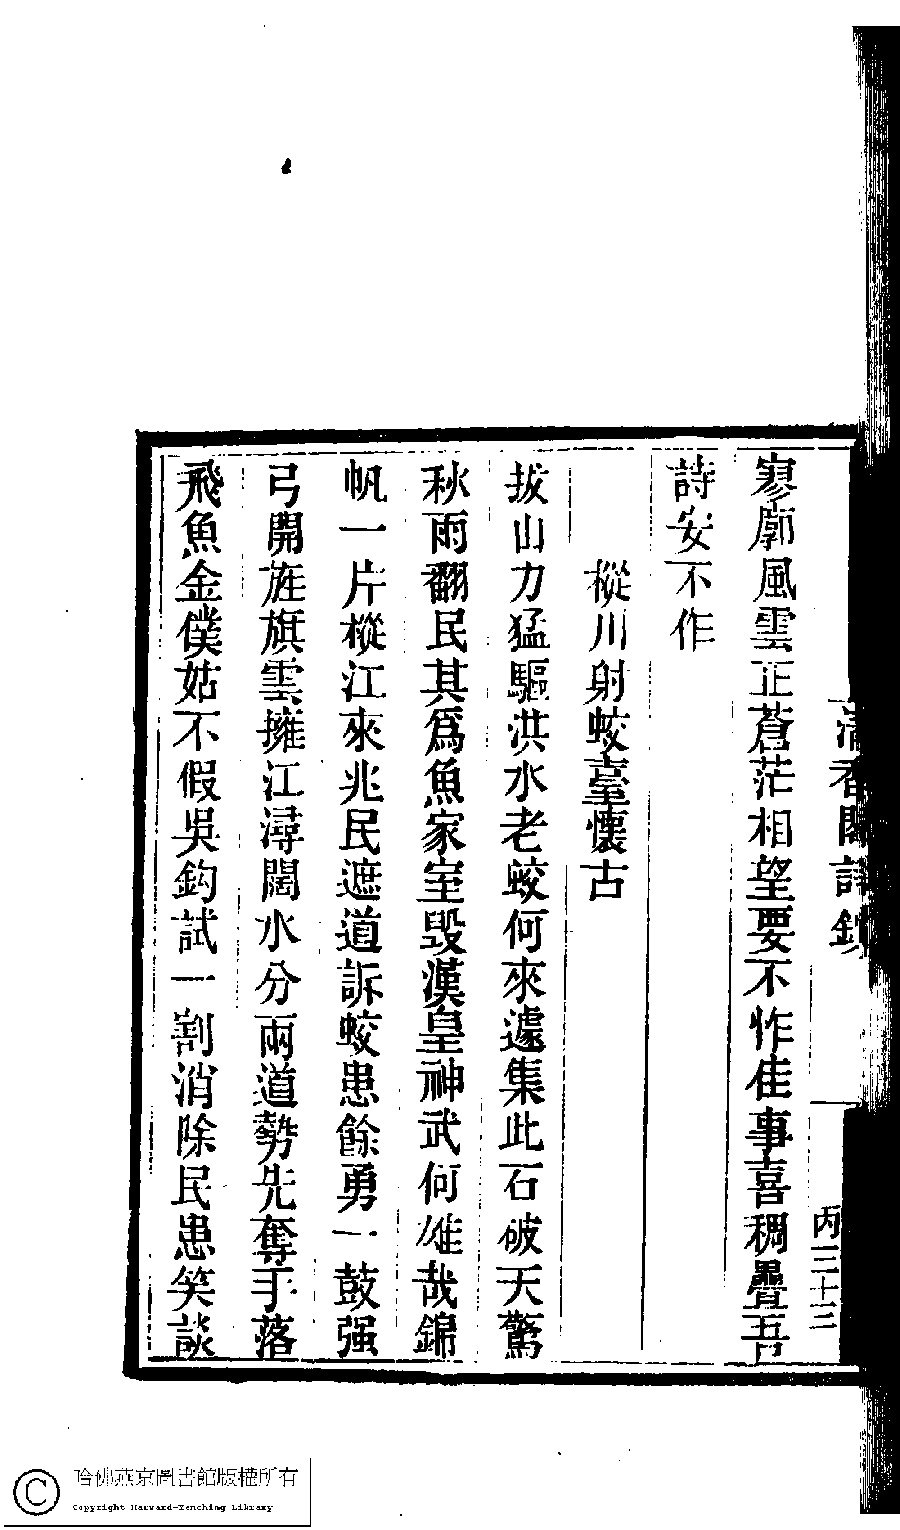 寥廓風雲正蒼茫相望要不怍佳事喜稠疊吾
詩安不作
樅川射蛟臺懷古
拔山力猛驅洪水老蛟何來遽集此石破天驚
秋雨翻民其爲魚家室毀漢皇神武何雄哉錦
帆一片樅江來兆民遮道訴蛟患餘勇一鼓强
弓開旌旗雲擁江潯闊水分兩道勢先奪手落
飛魚金僕姑不假吳鈎試一割消除民患笑談
清香閣詩鈔
丙三十三
哈佛燕京圖書館版權所有
Copyright Harvard-Yenching Library